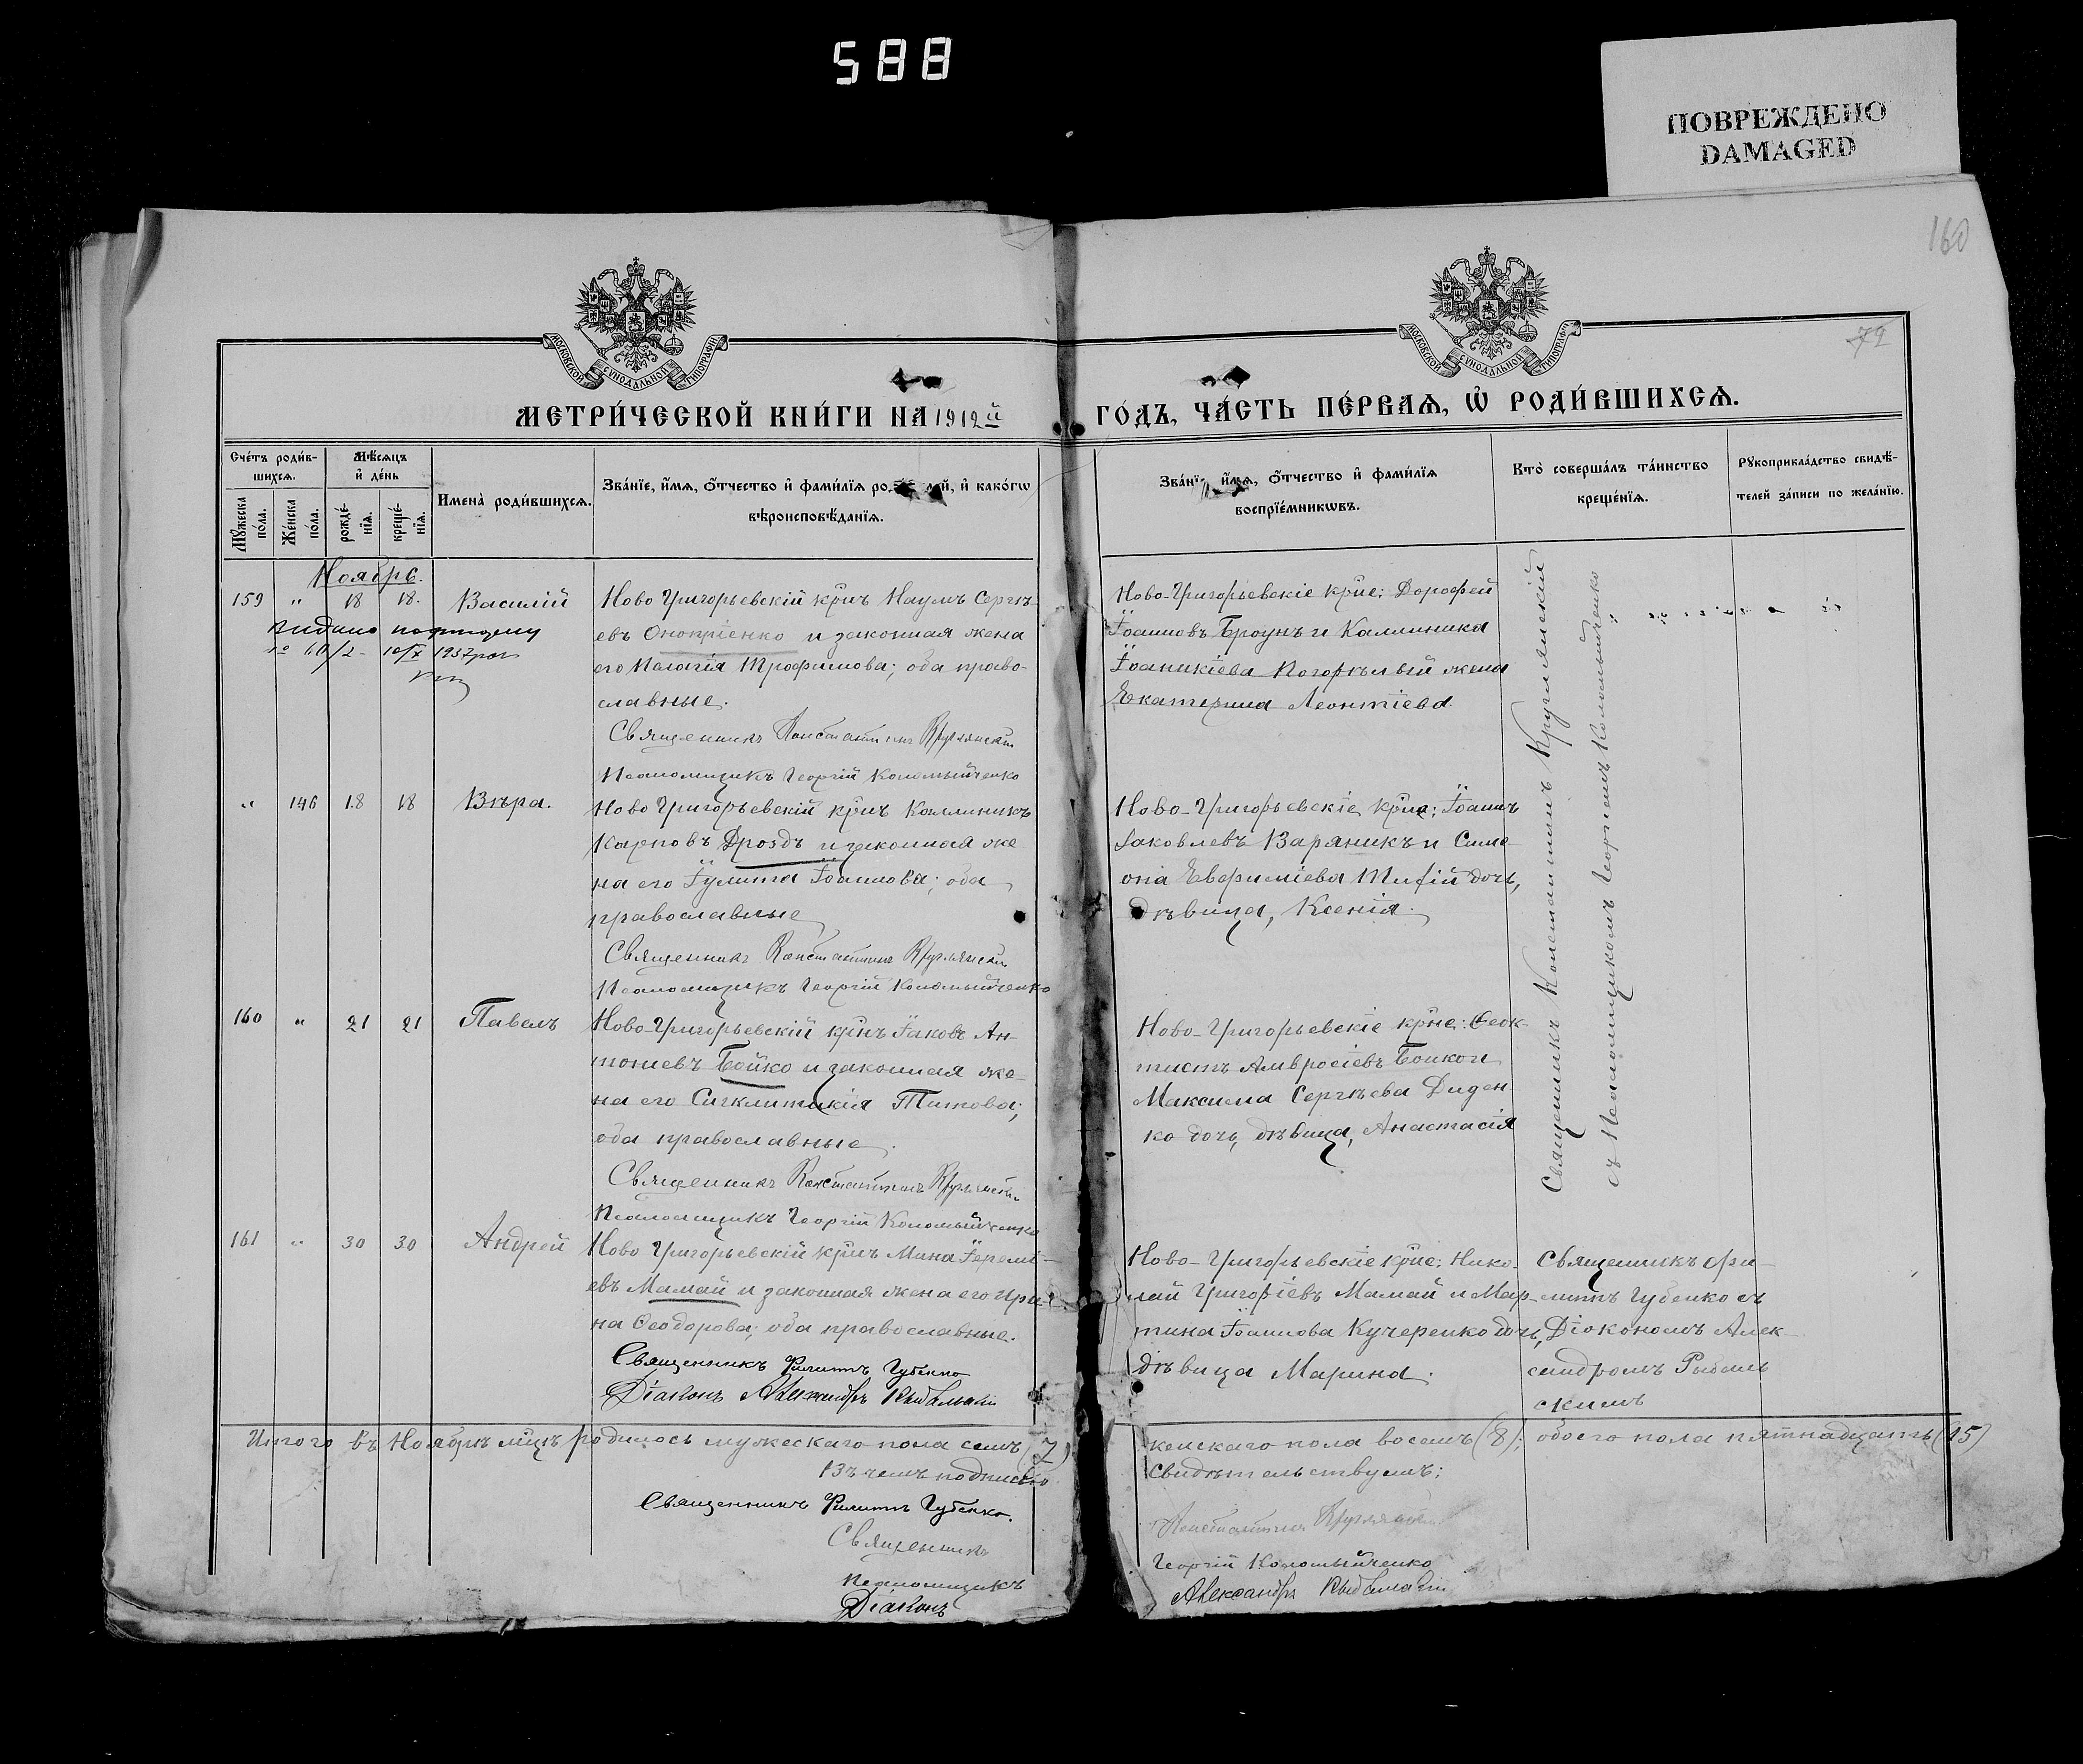 588
ПОВРЕЖДЕНО
DAMAGED
160
79
МОСКОВСКОЙ СѴНОДАЛЬНОЙ ТИПОГРАФІИ
МОСКОВСКОЙ СѴНОДАЛЬНОЙ ТИПОГРАФІИ
МЕТРИ́ЧЕСКОЙ КНИ́ГИ НА 1912й
ГО́ДЪ, ЧА́СТЬ ПЕ́РВАѦ, Ѡ҆ РОДИ́ВШИХСѦ.
Сче́тъ роди́в-
шихсѧ.
Мѣ́сѧцъ
и҆ де́нь
Мꙋ́жеска по́ла.
Же́нска по́ла.
рожде́-нїѧ.
креще́-нїѧ.
Имена̀ роди́вшихсѧ.
Зва́нїе, и҆́мѧ, ѻ҆́тчество и҆ фами́лїѧ ро лей, и҆ како́гѡ
вѣроисповѣ́данїѧ.
Зва́нї и҆́мѧ, ѻ҆́тчество и҆ фами́лїѧ
воспрїе́мникѡвъ.
Кто̀ соверша́лъ та́инство
креще́нїѧ.
Рꙋкоприкла́дство свидѣ́-
телей за́писи по жела́нїю.
Ноябрь.
159 " 18 18. Василій
Ново Григорьевскій крнъ Наумъ Сергѣ-
евъ Оноприенко и законная жена
его Пелагія Трофимова; оба право-
славные.
Священникъ Константинъ Круглянскій
Псаломщикъ Георгій Коломыйченко
10/X 1937
Ново-Григорьевскіе крне: Дорофей
Іоанновъ Броунъ и Каллиника
Іоаникіева Погорѣлый жена
Екатерина Леонтіева.
Священникъ Константинъ Круглянскій
съ Псаломщикомъ Георгіемъ Коломыйченко
" 146 18 18 Вѣра.
Ново Григорьевскій крнъ Каллиникъ
Карповъ Дроздъ и законная же
на его Іулита Іоаннова; оба
православные
Священникъ Константинъ Круглянскій
Псаломщикъ Георгій Коломыйченко
Ново-Григорьевскіе крне; Іоаннъ
Іаковлевъ Вараникъ и Симе-
она Евфиміева дочь,
дѣвица, Ксенія.
160 " 21 21 Павелъ
Ново-Григорьевскій крнъ Іаковъ Ан-
тониевъ Бойко и законная же-
на его Сигклитикія Титова;
оба православные.
Священникъ Константинъ Круглянскій
Псаломщикъ Георгій Коломыйченко
Ново-Григорьевскіе крне: Ѳеок-
тистъ Амвросіевъ Бойко и
Максима Сергѣева Диден-
ко дочь, дѣвица, Анастасія
161 " 30 30 Андрей
Ново Григорьевскій крнъ Мина Іеремі-
евъ Мамай и законная жена его Ири-
на Ѳеодорова; оба православные.
Священникъ Филиппъ Губенко
Діаконъ Александръ Рыбальскій
Ново-Григорьевскіе крне: Нико-
лай Григоріевъ Мамай и Мар-
тина Іоаннова Кучеренко дочь,
дѣвица Марина.
Священникъ Фи-
липпъ Губенко съ
Діакономъ Алек-
сандромъ Рыбаль
скимъ
Итого въ Ноябрѣ мцѣ родилось мужескаго пола семь (7)
женскаго пола восемь (8); обоего пола пятнадцать (15)
въ чемъ подписью
свидѣтельствуемъ:
Священникъ Филиппъ Губенко.
Священникъ
Константинъ Круглянскій
Псаломщикъ
Георгій Коломыйченко
Діаконъ
Александръ Рыбальскій